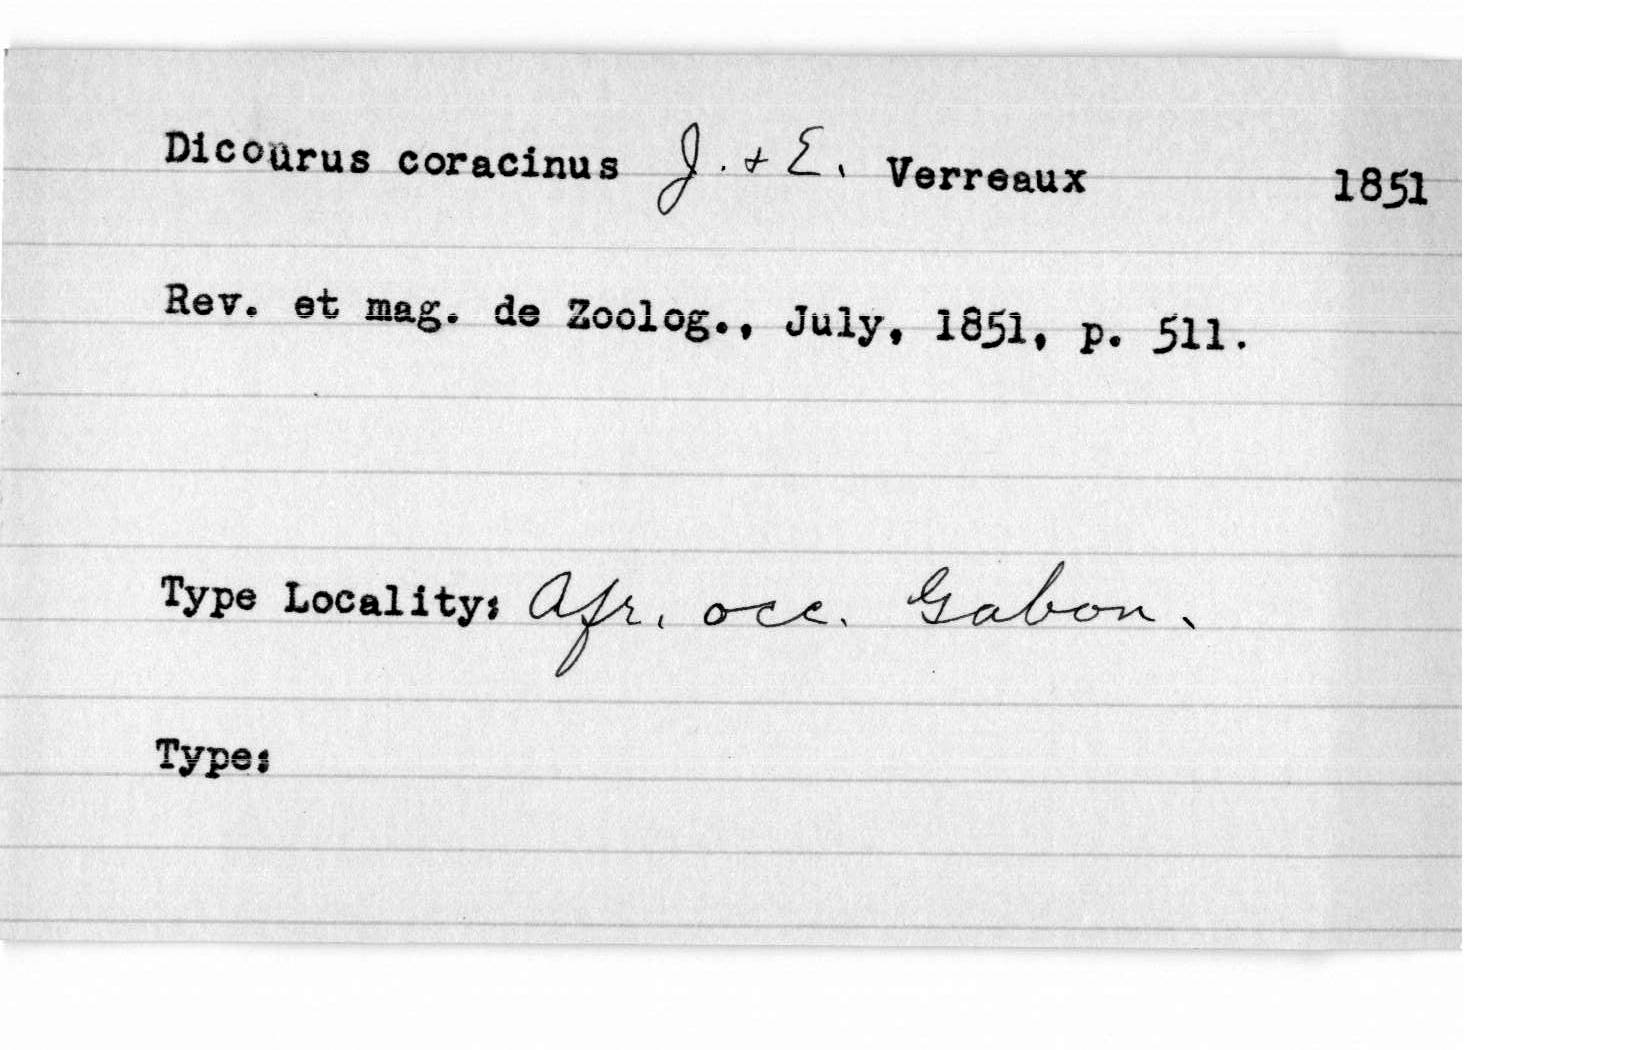 Dicourus coracinus J. + E. Verreaux 1851
Rev. et mag. de Zoolog., July, 1851, p. 511.
Type Locality: Afr. occ. Gabon.
Type: